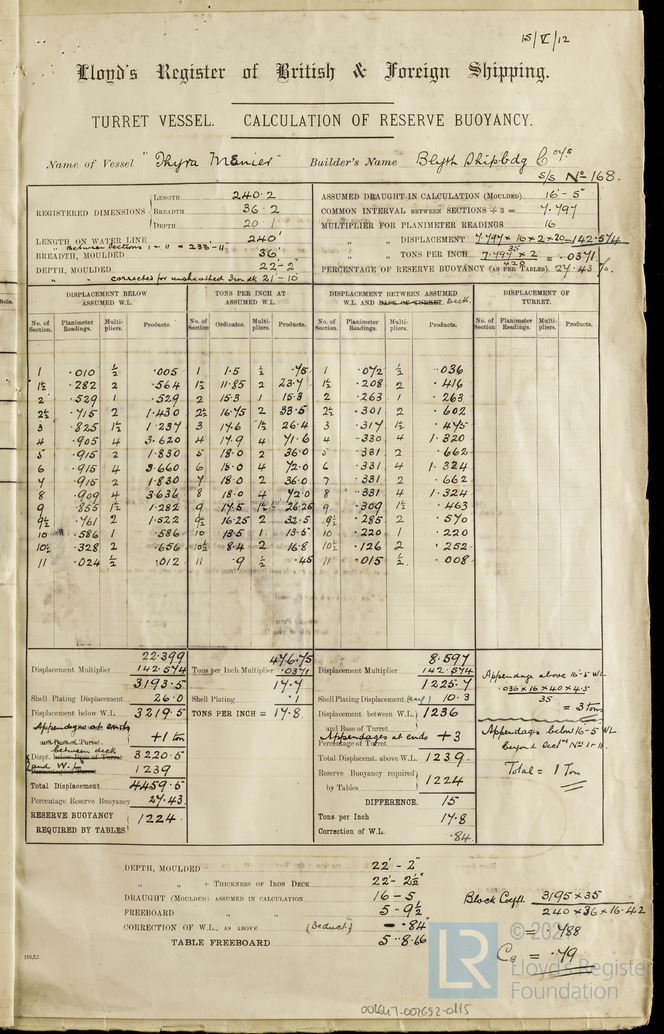 15/V/12
Lloyd's Register of British & Foreign Shipping.
TURRET VESSEL. CALCULATION OF RESERVE BUOYANCY.
Name of Vessel "Thyra Menier" Builder's Name Blyth Shipbdg Coy's
S/S No 168.
REGISTERED DIMENSIONS
LENGTH 240.2
BREADTH 36.2
DEPTH 20.1
LENGTH ON WATER LINE 240'
" Between Sections 1-11 = 238'-11"
BREADTH, MOULDED 36'
DEPTH, MOULDED 22'-2"
" " corrected for unsheathed Iron dk 21'-10"
ASSUMED DRAUGHT IN CALCULATION (MOULDED) 16'-5"
COMMON INTERVAL BETWEEN SECTIONS ÷ 3 = 7.797
MULTIPLIER FOR PLANIMETER READINGS 16
" " DISPLACEMENT 7.797 × 16 × 2 × 20 = 142.574
35
" " TONS PER INCH 7.797 × 2 = .0371
420
PERCENTAGE OF RESERVE BUOYANCY (AS PER TABLES) 27.43 %
DISPLACEMENT BELOW ASSUMED W.L. TONS PER INCH AT ASSUMED W.L. DISPLACEMENT BETWEEN ASSUMED W.L. AND BASE OF TURRET. Deck. DISPLACEMENT OF TURRET.
No. of Section. Planimeter Readings. Multipliers. Products. No. of Section Ordinates. Multipliers. Products. No. of Section. Planimeter Readings. Multipliers. Products. No. of Section. Planimeter Readings. Multipliers. Products.
1 .010 ½ .005 1 1.5 ½ .75 1 .072 ½ .036
1½ .282 2 .564 1½ 11.85 2 23.7 1½ .208 2 .416
2 .529 1 .529 2 15.3 1 15.3 2 .263 1 .263
2½ .715 2 1.430 2½ 16.75 2 33.5 2½ .301 2 .602
3 .825 1½ 1.237 3 17.6 1½ 26.4 3 .317 1½ .475
4 .905 4 3.620 4 17.9 4 71.6 4 .330 4 1.320
5 .915 2 1.830 5 18.0 2 36.0 5 .331 2 .662
6 .915 4 3.660 6 18.0 4 72.0 6 .331 4 1.324
7 .915 2 1.830 7 18.0 2 36.0 7 .331 2 .662
8 .909 4 3.636 8 18.0 4 72.0 8 .331 4 1.324
9 .855 1½ 1.282 9 17.5 1½ 26.25 9 .309 1½ .463
9½ .761 2 1.522 9½ 16.25 2 32.5 9½ .285 2 .570
10 .586 1 .586 10 13.5 1 13.5 10 .220 1 .220
10½ .328 2 .656 10½ 8.4 2 16.8 10½ .126 2 .252
11 .024 ½ .012 11 .9 ½ .45 11 .015 ½ .008
22.399
Displacement Multiplier 142.574
3193.5
Shell Plating Displacement 26.0
Displacement below W.L. 3219.5
Appendages at ends +1 ton
3220.5
Displ. between deck and W.L. 1239
Total Displacement 4459.5
Percentage Reserve Buoyancy 27.43
RESERVE BUOYANCY REQUIRED BY TABLES 1224
476.75
Tons per Inch Multiplier .0371
17.7
Shell Plating .1
TONS PER INCH = 17.8
8.597
Displacement Multiplier 142.574
1225.7
Shell Plating Displacement (say) 10.3
Displacement between W.L. and Base of Turret 1236
Appendages at ends +3
Percentage of Turret
Total Displacemt. above W.L. 1239.
Reserve Buoyancy required by Tables 1224
DIFFERENCE. 15
Tons per Inch 17.8
Correction of W.L. .84
Appendage above 16-5 WL
.036 × 16 × 40 × 4.5
35
= 3 Tons
Appendage below 16-5 WL
beyond Sectns No 1-11.
Total = 1 Ton
DEPTH, MOULDED 22'-2"
" " + THICKNESS OF IRON DECK 22'-2½"
DRAUGHT (MOULDED) ASSUMED IN CALCULATION 16-5
FREEBOARD " " 5-9½
CORRECTION OF W.L., AS ABOVE (Deduct) -.84
TABLE FREEBOARD 5-8.66
Block Coefft. 3195 × 35
240 × 36 × 16.42
= .788
CB = .79
© 202
LR
Lloyd's Register
Foundation
002647-002652-0115